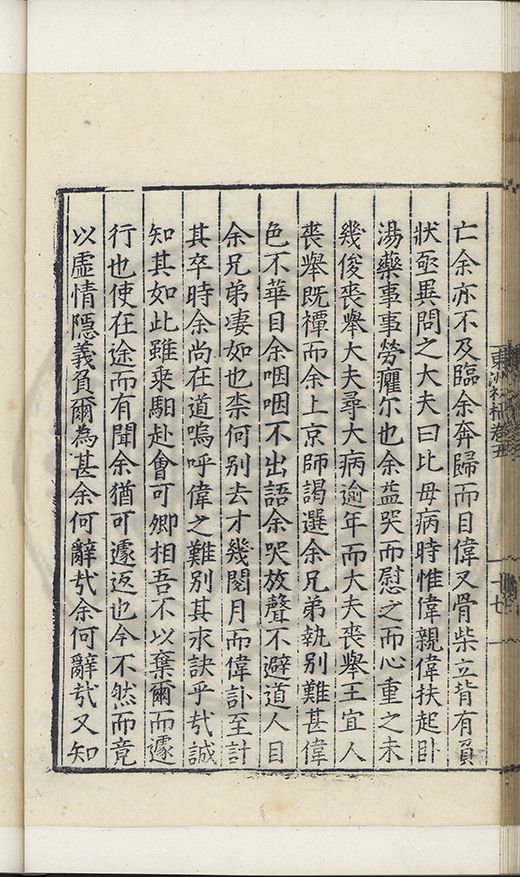 亡余亦不及臨余奔歸而目偉又骨柴立背有負
狀亟異問之大夫曰比毋病時惟偉親偉扶起卧
湯藥事事勞癯尓也余益哭而慰之而心重之未
幾俊喪舉大夫尋大病逾年而大夫喪舉王宜人
喪舉既禫而余上京師謁選余兄弟執別難甚偉
色不華目余咽咽不出語余哭放聲不避道人目
余兄弟凄如也柰何別去才幾閱月而偉訃至計
其卒時余尚在道嗚呼偉之難別其永訣乎㢤誠
知其如此雖乗馹赴會可卿相吾不以棄爾而遽
行也使在途而有聞余猶可遽返也今不然而竟
以虛情隱義負爾為甚余何辭㢤余何辭㢤又知
東洲初稿卷五
十七